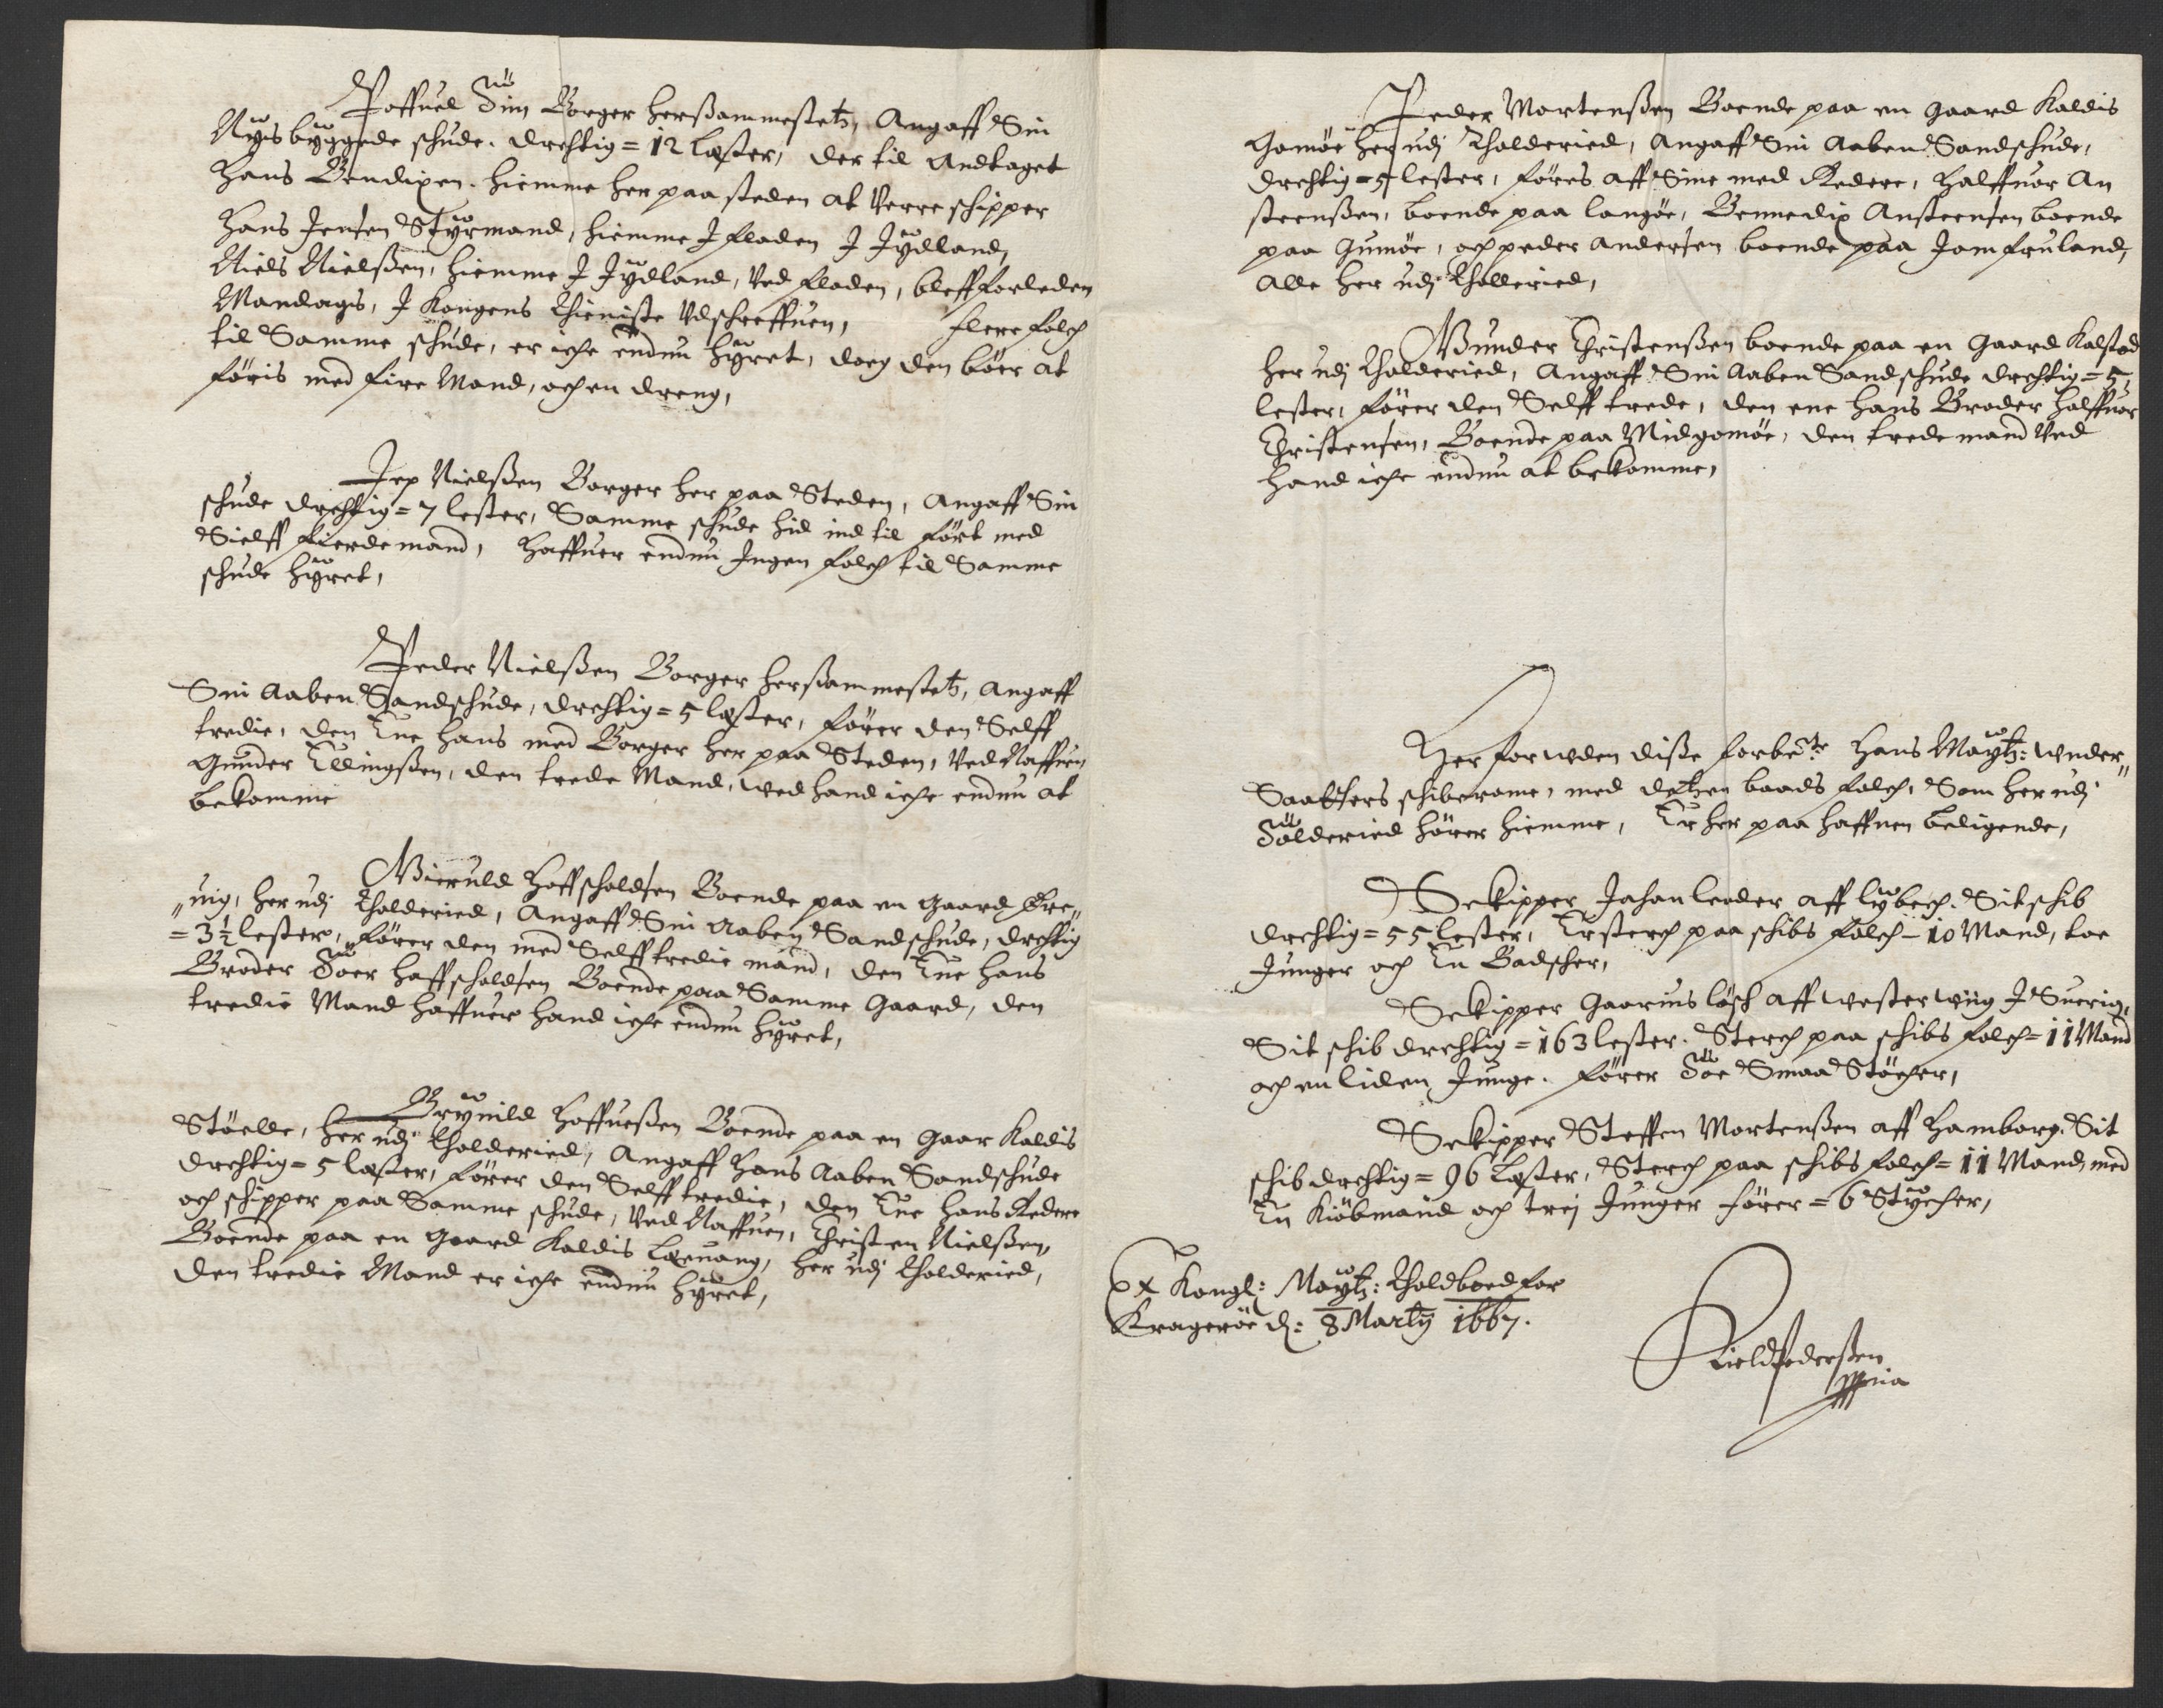 Poffuel Dim Borger hersammestetz, Angaff Sin
Nyis byggede schude. drechtig = 12 læster, der til Andtaget
Hans Bendixen. hiemme her paa steden at Verre schipper
Hans Jensen Styrmand, hiemme I fladen I Jydland,
Niels Nielsßen, hiemme I Jydland, Ved fladen, bleff forleden
Mandags, I Kongens Thieniste Vdschreffuen, flere folch
til Samme schude, er iche endnu hyret, dog den böer at
föris med fire Mand, och en dreng,
Jep Nielsßen Borger her paa Steden, Angaff Sin
schude drechtig = 7 lester, Samme schude hid ind til fört med
Sielff fierde mand, Haffuer endnu Ingen folch til Samme
schude hyret,
Peder Nielsßen Borger hersammestetz, Angaff
Sin Aaben Sandschude, drechtig = 5 læster, förer den Selff
tredie, den Ene hans med Borger her paa Steden, Ved Naffuen
Gunder Ellingsßen, den trede Mand, wed hand iche endnu at
bekomme
Wieruld Hoffscholdsen Boende paa en Gaard Bre„
„uig, her udj Tholderied, Angaff Sin Aaben Sandschude, drechtig
= 3½ lester, förer den med Selff tredie mand, den Ene hans
Broder Toer Haffscholdsen Boende paa Samme Gaard, den
tredie Mand haffuer hand iche endnu hyret,
Brynild Hoffuesßen Boende paa en Gaar Kaldis
Stöelle, her udj tholderied, Angaff hans Aaben Sandschude
drechtig = 5 læster, förer den Selff tredie, den Ene hans Redere
och schipper paa Samme schude, Ved Naffuen, Christen Nielsßen,
Boende paa en Gaard Kaldis Leruang, her udj tholderied,
den tredie Mand er iche endnu hyret,
Peder Mortensßen Boende paa en Gaard Kaldis
Gomöe her udj Tholderied, Angaff Sin Aaben Sandschude,
drechtig = 5 lester, föres aff Sine med Redere, Halffuor An
steensßen, boende paa langöe, Bennedix Ansteensen boende
paa Gumöe, och peder Andersen boende paa Jomfruland,
Alle her udj Tholleried,
Gunder Christensßen boende paa en Gaard Kalstad
her udj Tholderied, Angaff Sin Aaben Sandschude drechtig = 5,
lester, förer den Selff trede, den ene hans Broder Halffuor
Christensen, Boende paa Midgomöe, den trede mand Ved
hand iche endnu at bekomme,
Her forwden disße forbete. Hans Maytz: wnder„
Saatters schiberome, med detzen baads folch, Som her udj
Tolderied hörer hiemme, Er her paa haffnen beligende,
Sckipper Johan leoder aff lybech. Sit schib
drechtig = 55 lester, Er sterch paa schibs folch = 10 Mand, toe
Junger och En Badscher,
Sckipper Gaarius lösch aff westerwiig I Suerig,
Sit schib drechtig = 163 lester. Sterch paa schibs folch = 11 Mand
och en liden Junge. förer Toe Smaa Stöcher,
Sckipper Steffen Mortensßen aff Hamborg. Sit
schib drechtig = 96 Læster, Sterch paa schibs folch = 11 Mand, med
En Kiöbmand och trej Junger förer = 6 Stycher,
Ex Kongl: Maytz: Tholdboed for
Krageröe d: 8 Marty 1667.
Kield Pedersßen
mppria